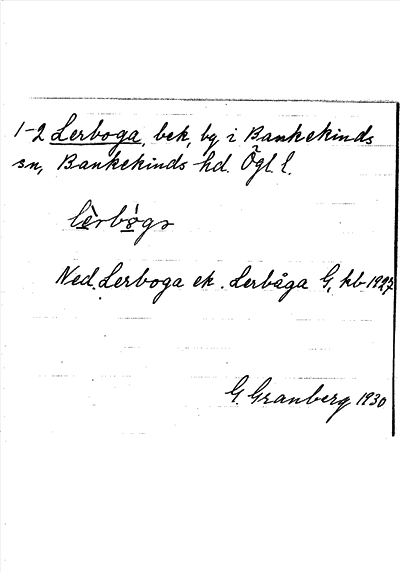 1-2 Lerboga, bek, by i Bankekinds
sn, Bankekinds hd. Ögl. l.
lèrbógs
Ned. Lerboga ek. Lerbåga G, kb 1927.
G. Granberg 1930